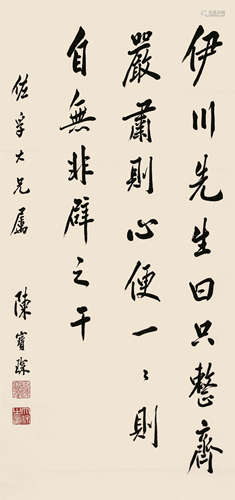 伊川先生曰只整齊
嚴肅則心便一一則
自無非辟之干
佐宇大兄屬
陳寶琛